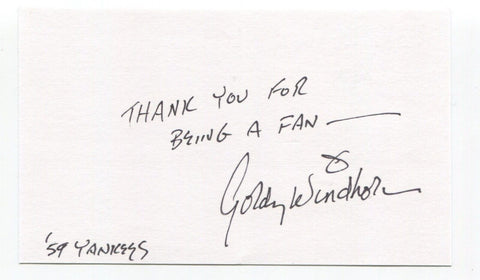 THANK YOU FOR
BEING A FAN —
Gordy Windhorn
'59 YANKEES